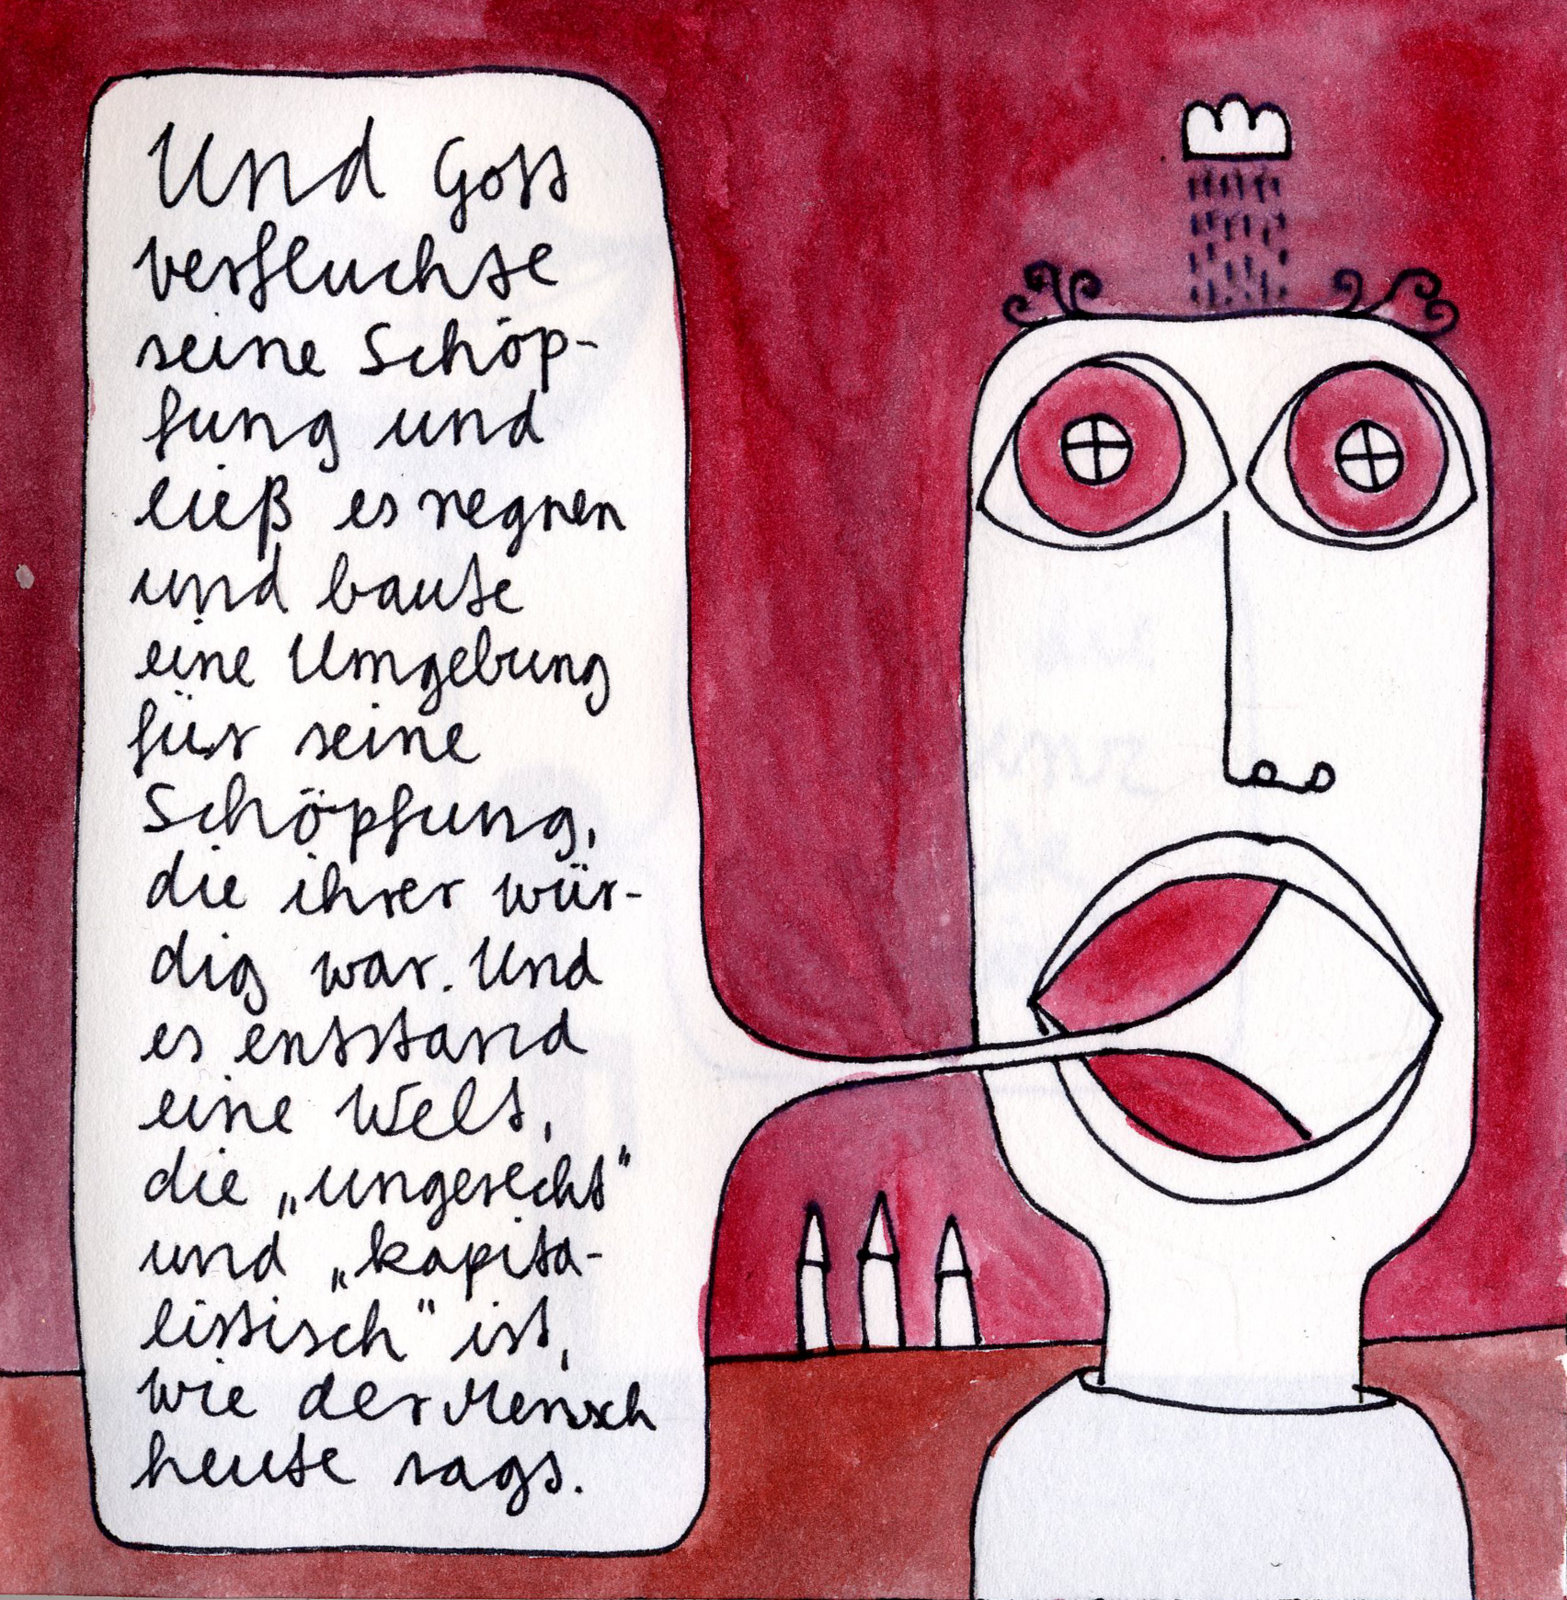 Und Gott
verfluchte
seine Schöp-
fung und
ließ es regnen
und baute
eine Umgebung
für seine
Schöpfung,
die ihrer wür-
dig war. Und
es entstand
eine Welt,
die „ungerecht"
und „kapita-
listisch" ist,
wie der Mensch
heute sagt.